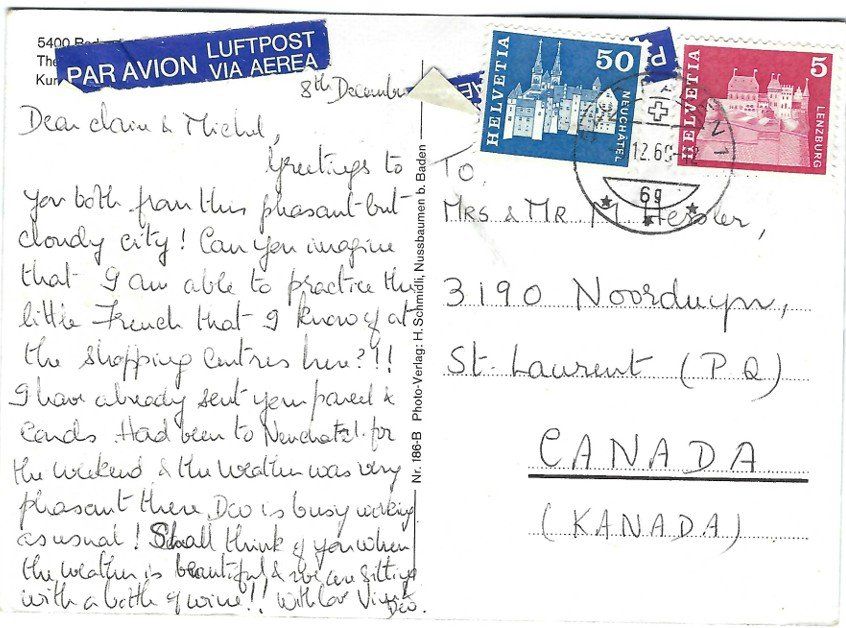 5400
The
Kur
PAR AVION LUFTPOST
VIA AEREA
8th December
Dear Claire & Michel,
Greetings to
you both from this pleasant but
cloudy city! Can you imagine
that I am able to practice the
little French that I know of at
the shopping centres here?!!
I have already sent your parcel &
Cards. Had been to Neuchatel for
the weekend & the weather was very
pleasant there. Dev is busy working
as usual! Shall think of you when
the weather is beautiful & we are sitting
with a bottle of wine!! With love
Dev.
Nr. 186-B Photo-Verlag: H. Schmidli, Nussbaumen b. Baden
HELVETIA 50 NEUCHÂTEL
HELVETIA 5 LENZBURG
12.69
69
To,
Mrs & Mr M. Hessler,
3190 Noorduyn,
St-Laurent (PQ)
CANADA
(KANADA)